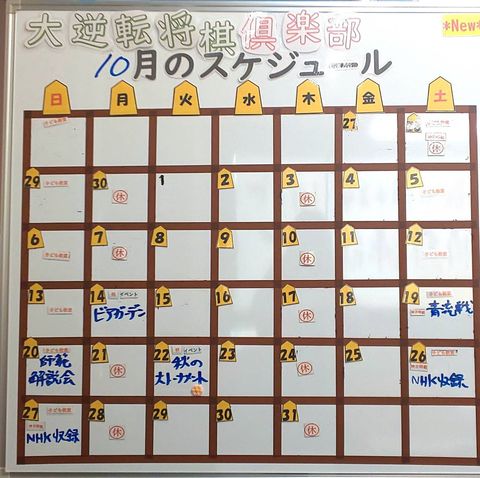 大逆転将棋倶楽部
*New*
10月のスケジュール
日 月 火 水 木 金 土
27 子ども教室 休
子ども教室
29 子ども教室 30 休 1 2 3 休 4 5 子ども教室
6 子ども教室 7 休 8 9 10 休 11 12 子ども教室
13 子ども教室 14 祝 イベント 15 16 17 休 18 19 子ども教室
ビアガーデン 青流戦
20 子ども教室 21 休 22 祝 イベント 23 24 休 25 26 子ども教室
師範 秋の
解説会 大トーナメント NHK収録
27 子ども教室 28 休 29 30 31 休
NHK収録